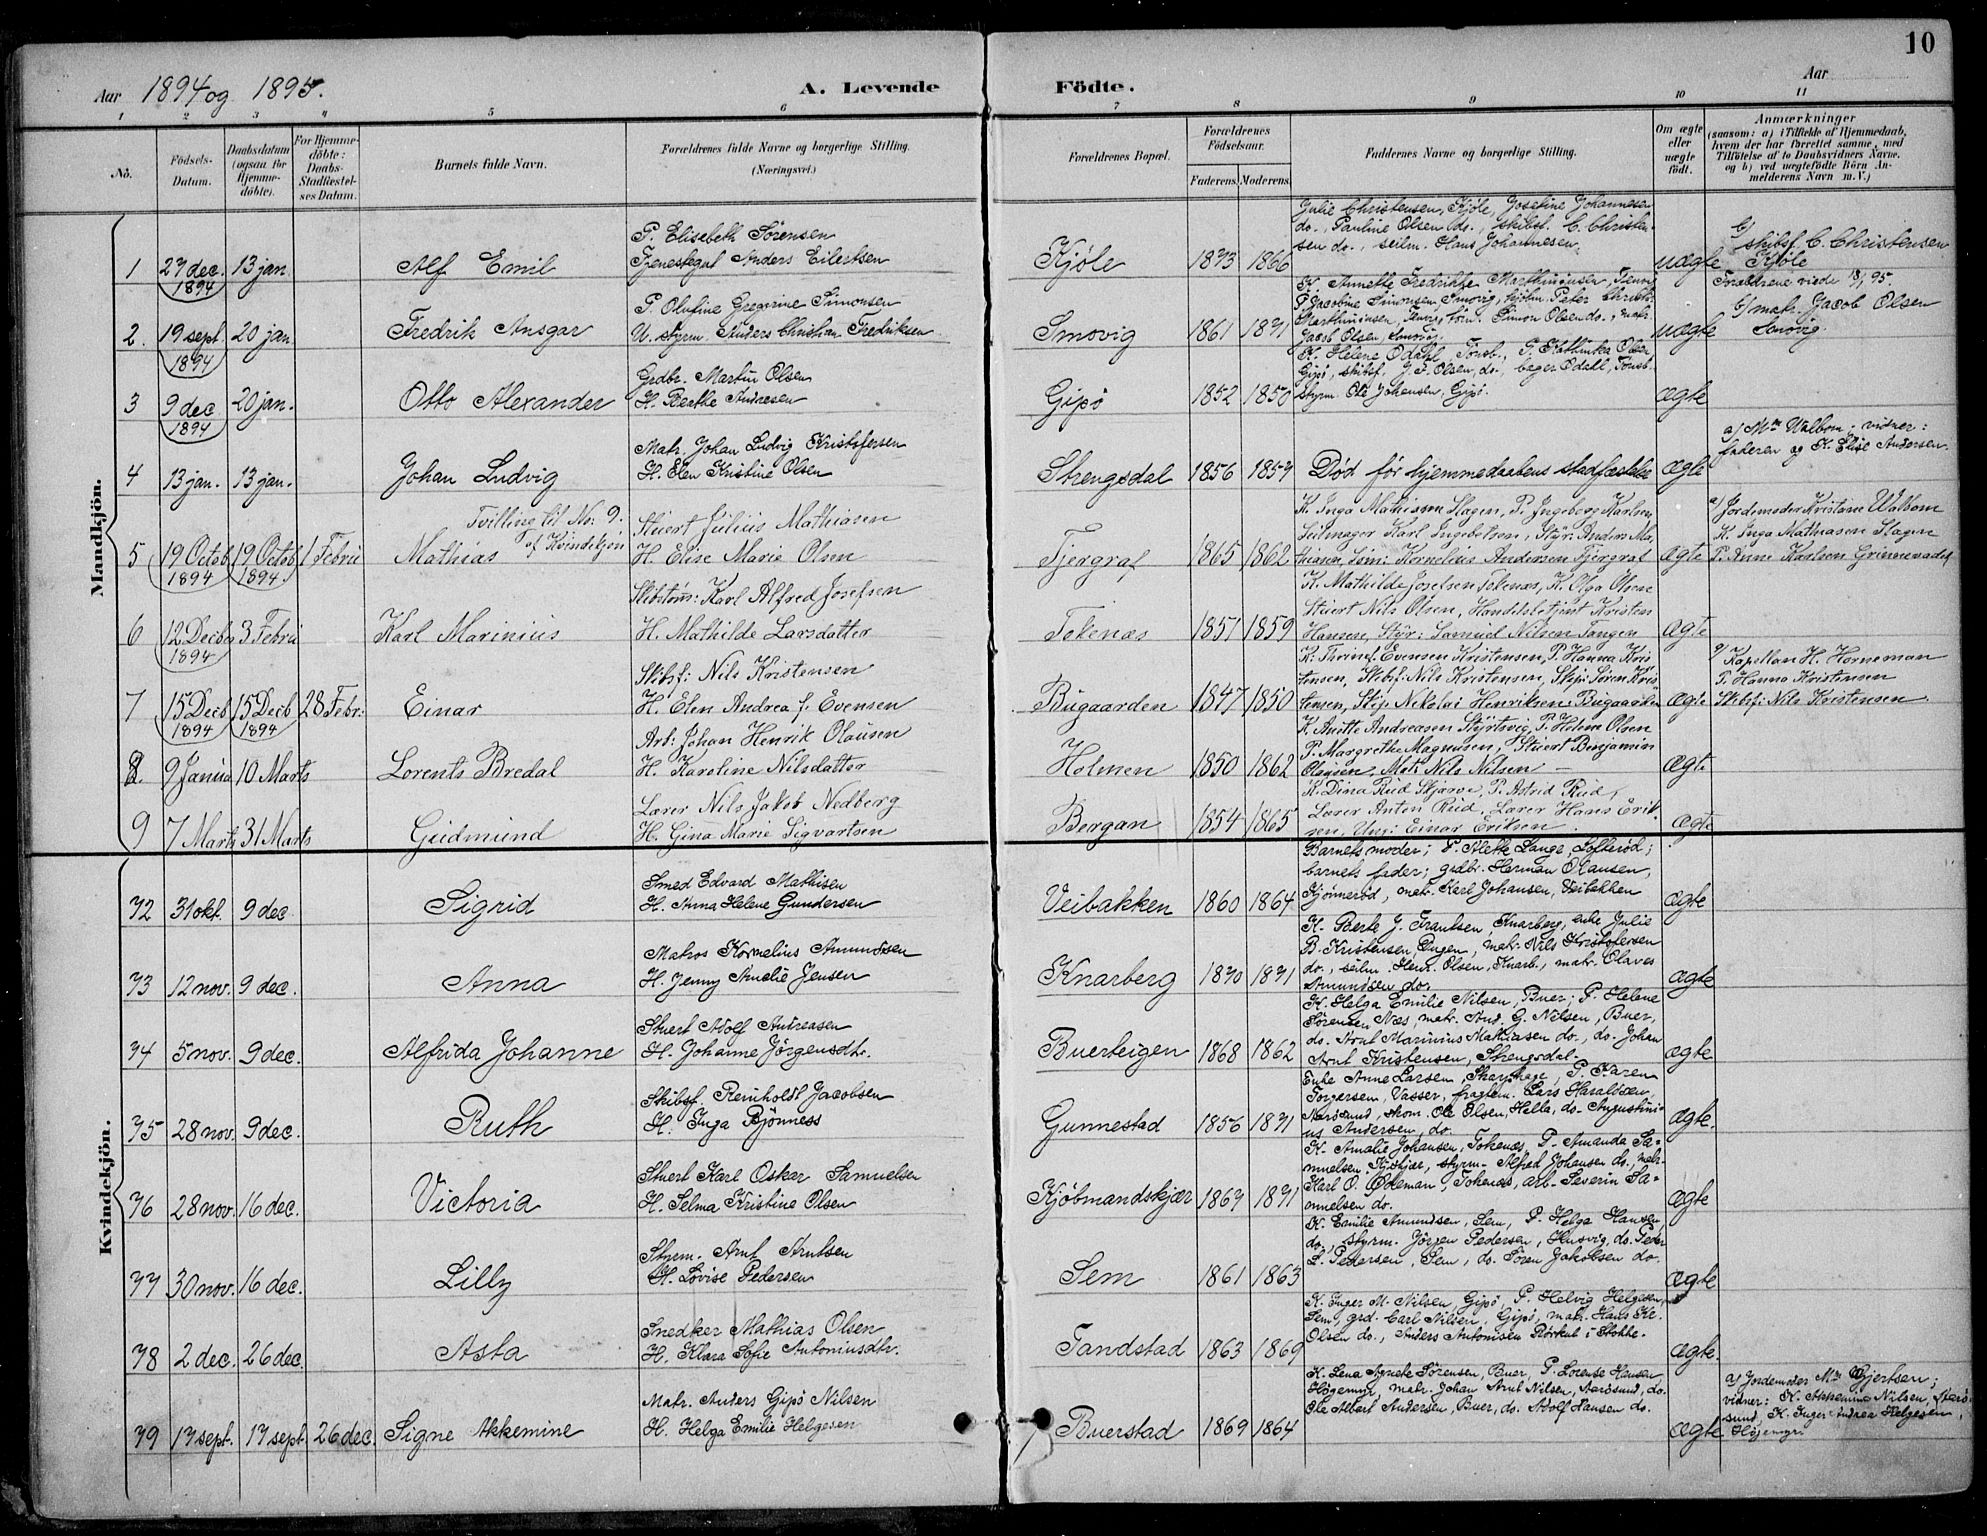 10
Aar 1894 og 1895.
A. Levende Fødte.
Aar
1 2 3 4 5 6 7 8 9 10 11
No.
Födsels-Datum.
Daabsdatum (ogsaa for Hjemme-döbte).
For Hjemme-döbte: Daabs-Stadfæstel-ses Datum.
Barnets fulde Navn.
Forældrenes fulde Navne og borgerlige Stilling. (Næringsvei.)
Forældrenes Bopæl.
Forældrenes Födselsaar.
Faderens. Moderens.
Faddernes Navne og borgerlige Stilling.
Om ægte eller uægte födt.
Anmærkninger
(saasom: a) i Tilfælde af Hjemmedaab, hvem der har forrettet samme, med Tilföielse af to Daabsvidners Navne, og b) ved uægtefödte Börn An-melderens Navn m. V.)
Mandkjön.
1 27 dec. 1894 13 jan. Alf Emil
P. Elisabeth Sørensen
Tjenestegut Anders Eilertsen
Kjøle 1873 1866
Julie Christensen, Kjøle, Josefine Johannesen
do., Pauline Olsen do., skibsf. C. Christen-
sen do., seilm. Hans Johannesen.
uægte
b/ skibsf. C. Christensen
Kjøle
Forældrene viede 13/1 95.
2. 19 sept. 1894 20 jan. Fredrik Ansgar
P. Olufine Gregorine Simonsen
U. styrm. Anders Christian Fredriksen
Smovig 1861 1871
K. Annette Fredrikke Marthiniusen, Tenvig
P. Jacobine Simonsen Smovig, hjolm. Peter Christ.
Marthiniusen, Tenvig, tøm. Simon Olsen do., matr.
Jacob Olsen, Smovig.
uægte
b/ matr. Jacob Olsen
Smovig.
3 9 dec 1894 20 jan. Otto Alexander
Grdbr. Martin Olsen
H. Beathe Andresen
Gipø 1852 1850
K. Helene Ødahl, Tønsb., P. Kathinka Olsen
Gipø, skibsf. J. F. Olsen, do., bager Ødahl, Tønsb.
styrm. Ole Johensen, Gipø.
ægte
4 13 jan. 13 jan. Johan Ludvig
Matr. Johan Ludvig Kristofersen
H. Elen Kristine Olsen
Strengsdal 1856 1859
Død før hjemmedaabens stadfæstelse
ægte
a/ Mm Walbom; vidner:
faderen og K. Elise Andersen.
5 19 Octob 1894 19 Octob 1894 1 Febru Mathias
Tvilling til No: 9.
af Kvindekjøn
Stuert Julius Mathiasen
H. Elise Marie Olsen
Fjergraf 1865 1862
K. Inga Mathiasen Slagen, P. Ingeborg Karlsen,
Seilmager Karl Ingebretsen, Styr: Anders Ma-
thiasen, Sömd Kornelius Andersen Fjergraf
ægte
a/ Jordemoder Kristiane Walbom
K. Inga Mathiasen Slagen
P. Anne Karlsen Grimmevadet
6 12 Decbr 1894 3 Febru Karl Marinius
Skibstöm: Karl Alfred Josefsen
H. Mathilde Larsdatter
Tokenæs 1857 1859
K. Mathilde Josefsen Tokenæs, K. Olga Olsen
Stuert Nils Olsen, Handelsbetjent Kristens
Hansen, Styr: Samuel Nilsen Tangen
ægte
7 15 Decb 1894 15 Decb 1894 28 Febr: Einar
Skibsf: Nils Kristensen
H. Elen Andrea f. Evensen
Bugaarden 1847 1850
K: Thrine f. Evensen Kristensen, P. Hanna Kris
tensen, Skibsf: Nils Kristensen, Skip: Sören Kris
tensen, Skip Nikolai Henriksen Bugaarden
ægte
a/ Kapellan H. Horneman
P. Hanna Kristensen
Skibsf: Nils Kristensen
8. 9 Janua 10 Marts Lorents Bredal
Arb: Johan Henrik Olausen
H. Karoline Nilsdatter
Holmen 1850 1862
K. Anitte Andreasen Styrtsvig, P. Helene Olsen
P. Margrethe Magnusen, Stuert Benjamin
Olausen, Matr Nils Nilsen —
ægte
9 7 Marts 31 Marts Gudmund
Lærer Nils Jakob Nedberg
H. Gina Marie Sigvartsen
Bergan 1854 1865
K. Dina Rud Skjærve, P. Astrid Rud,
Lærer Anton Rud, Lærer Hans Erik-
sen, Ung: Einar Eriksen.
ægte
Kvindekjön.
72 31 okt. 9 dec. Sigrid
Smed Edvard Mathisen
H. Anna Helene Gundersen
Veibakken 1860 1864
Barnets moder; P. Alette Lange, Lofterød;
barnets fader; grdbr. Herman Olausen,
Kjønnerød, matr. Karl Johansen, Veibakken
ægte
73 12 nov. 9 dec. Anna
Matros Kornelius Amundsen
H. Jenny Amalie Jensen
Knarberg 1870 1871
K. Berte J. Frantsen, Knarberg, enke Julie
B. Kristensen, Engen, matr. Nils Kristofersen
do., seilm. Henr. Olsen, Knarb., matr. Olaves
Amundsen do.
ægte
74 5 nov. 9 dec. Alfrida Johanne
Stuert Adolf Andreasen
H. Johanne Jørgensdtr.
Buerteigen 1868 1862
K. Helga Emilie Nilsen, Buer; P. Helene
Sørensen Næs, matr. And. G. Nilsen, Buer,
do. Arnt Marinius Mathiasen do., do. Johan
Arnt Kristensen, Strengsdal.
ægte
75 28 nov. 9 dec. Ruth
Skibsf. Reinholdt Jacobsen
H. Inga Bjønness
Gunnestad 1856 1871
Enke Anne Larsen, Skarphage, P. Karen
Torgersen, Vasser, fragtem. Lars Haraldsen,
Aarøsund, skom. Ole Olsen, Hella, do. Augustini-
us Andersen, do.
ægte.
76 28 nov. 16 dec. Victoria
Stuert Karl Oskar Samuelsen
H. Selma Kristine Olsen
Kjøbmandskjær 1869 1871
K. Amalie Johansen, Tokenæs, P. Amanda Sa-
muelsen Kjøbkjær, styrm. Alfred Johansen do., matr.
Karl O. Ødeman, Tokenæs, arb. Severin Sa-
muelsen do.
ægte
77 30 nov. 16 dec. Lilly
Styrm. Arnt Arntsen
H. Lovise Pedersen
Sem 1861 1863
K. Emilie Amundsen, Sem, P. Helga Hansen,
do., styrm. Jørgen Pedersen, Husvig, do. Peder
L. Pedersen, Sem, do. Søren Jakobsen do.
ægte
78 2 dec. 26 dec. Asta
Snedker Mathias Olsen
H. Klara Sofie Antoniusdtr.
Tandstad 1863 1869
K. Inger M. Nilsen, Gipø, P. Helvig Helgesen,
Sem, grd. Carl Nilsen, Gipø, matr. Hans Kr.
Olsen do., Anders Antonisen Rørkul i Stokke.
ægte.
79 17 sept. 17 sept. 26 dec. Signe Akkemine
Matr. Anders Gipø Nilsen
H. Helga Emilie Helgesen
Buerstad 1869 1864
K. Lena Agnete Sørensen, Buer, P. Lorense Hansen
Høgemyr, matr. Johan Arnt Nilsen, Aarøsund, do.
Ole Albert Andersen, Buer, do. Adolf Hansen do.
ægte
a/ Jordemoder Mm Gjertsen;
vidner: K. Akkemine Nilsen, Aarø-
sund, K. Inger Andrea Helgesen,
Højemyr.